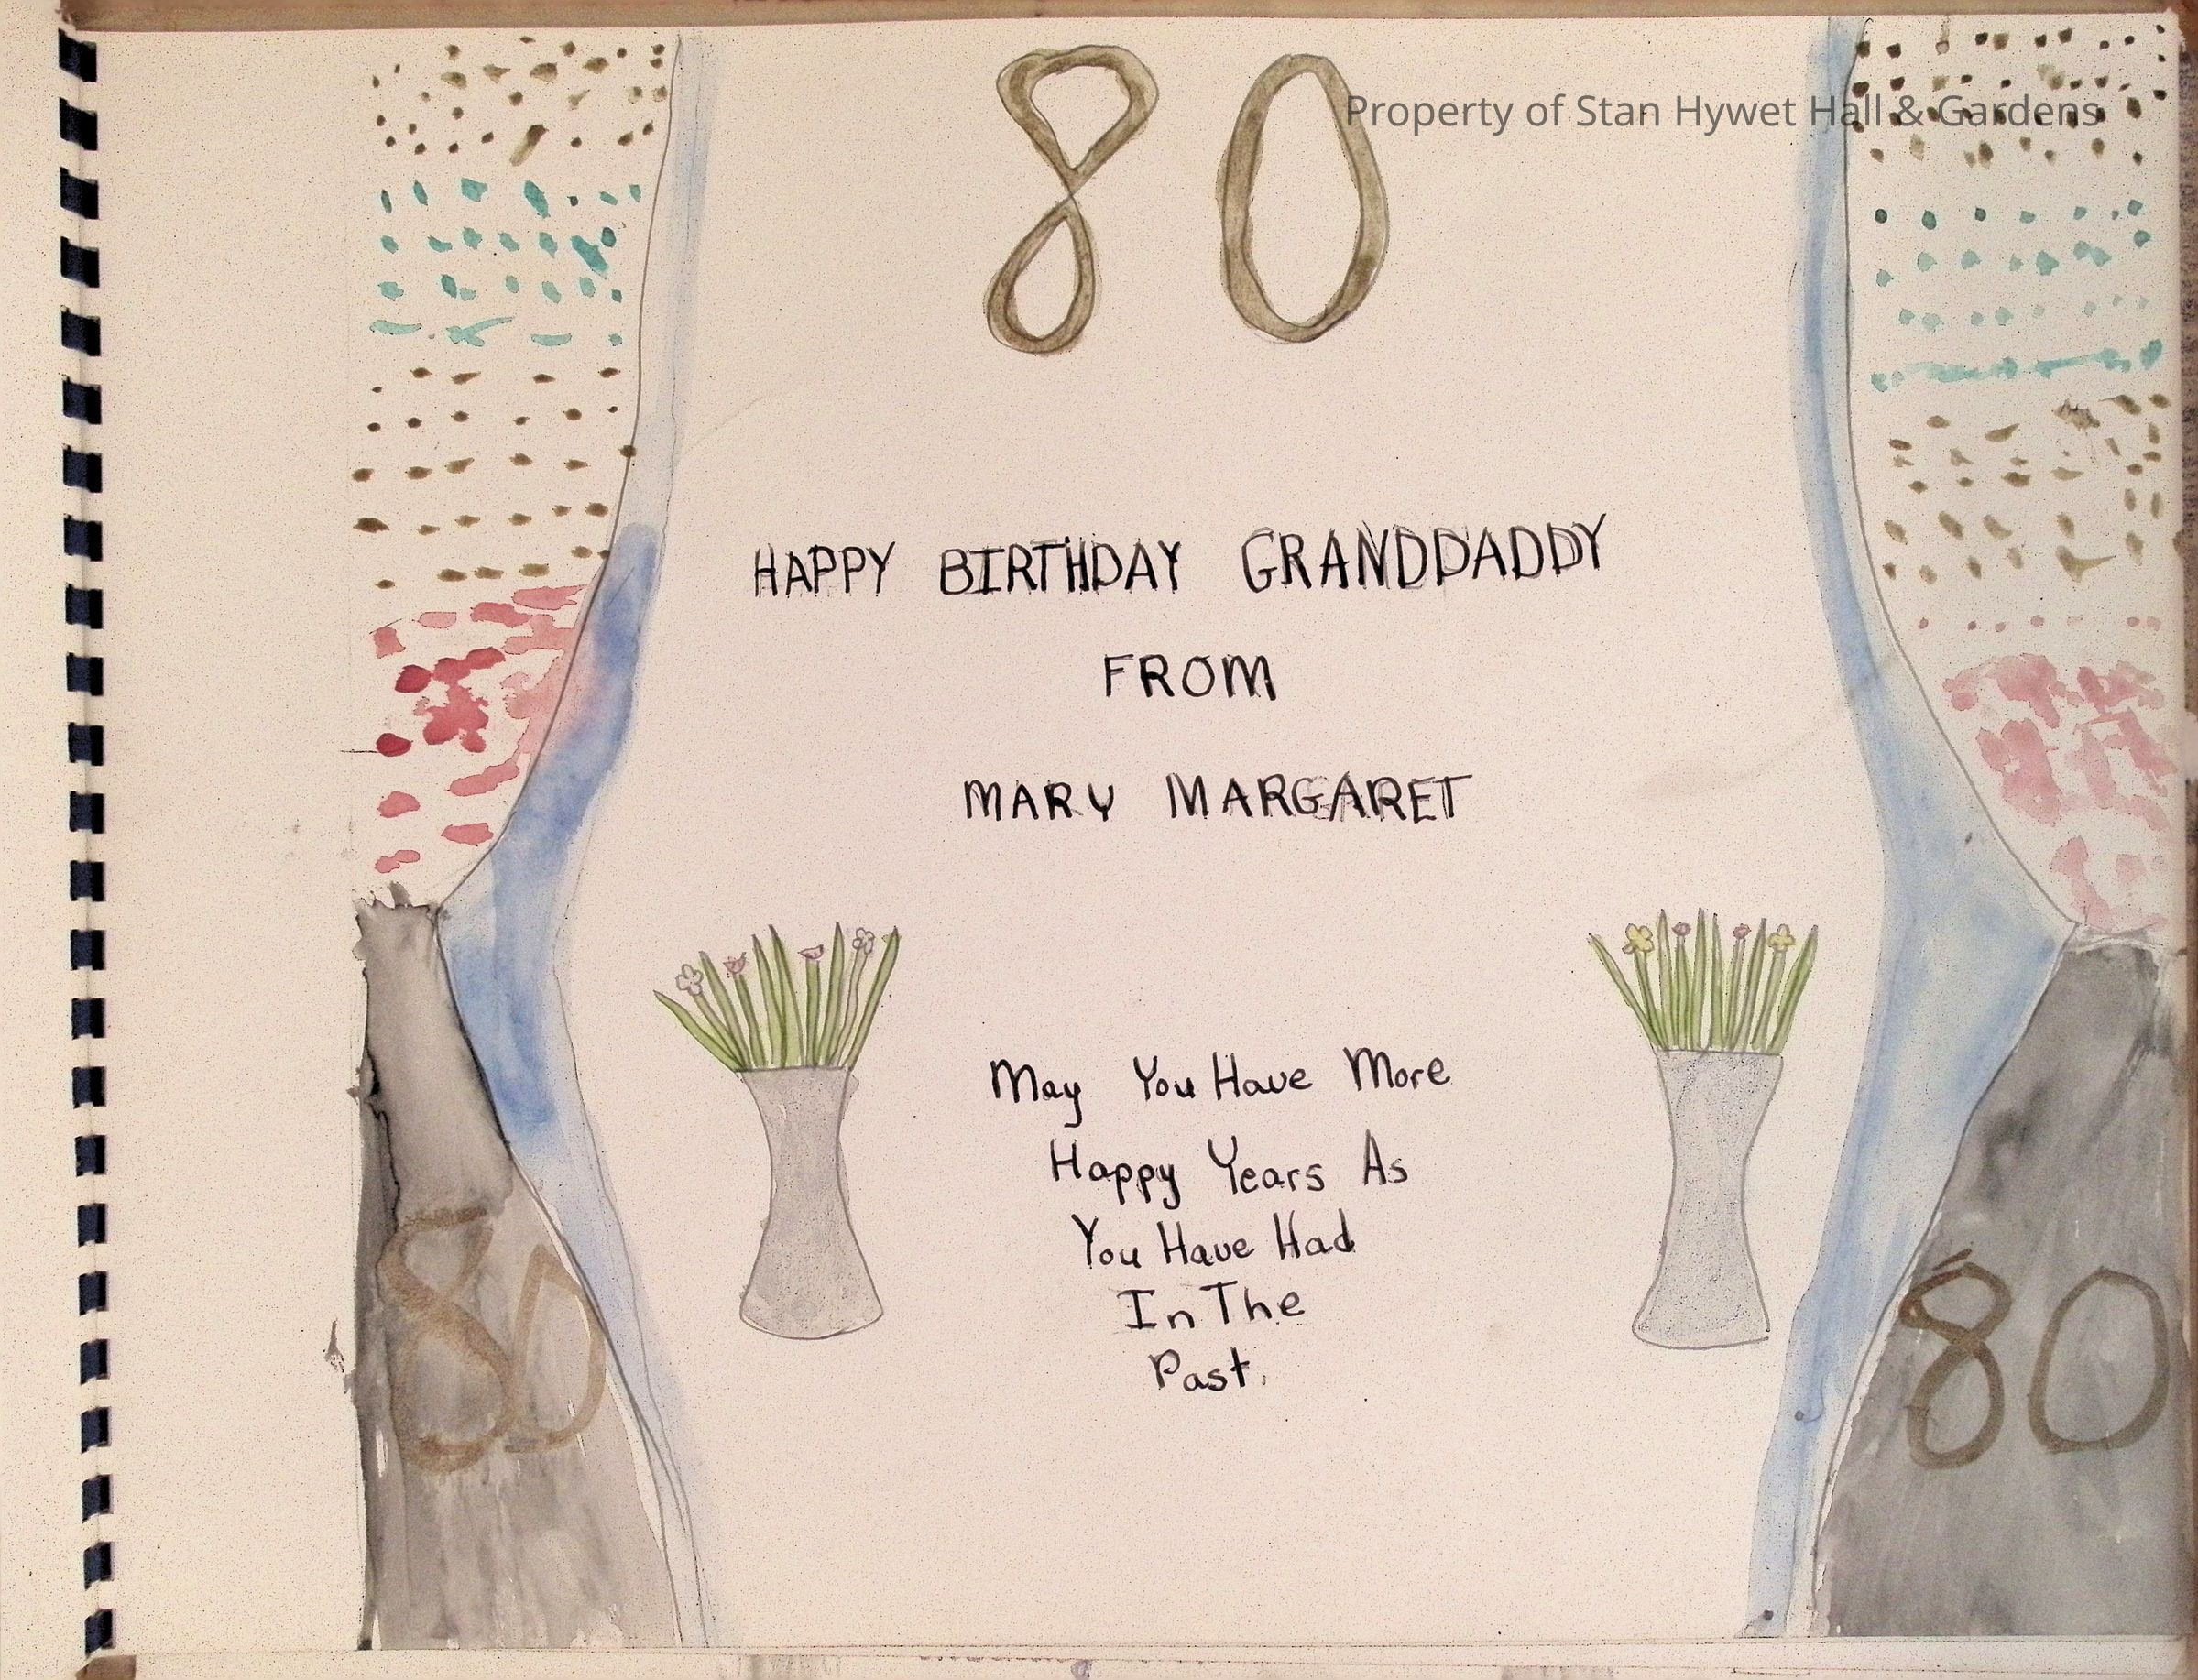 80
Property of Stan Hywet Hall & Gardens
HAPPY BIRTHDAY GRANDDADDY
FROM
MARY MARGARET
May You Have More
Happy Years As
You Have Had
In The
Past.
80
80